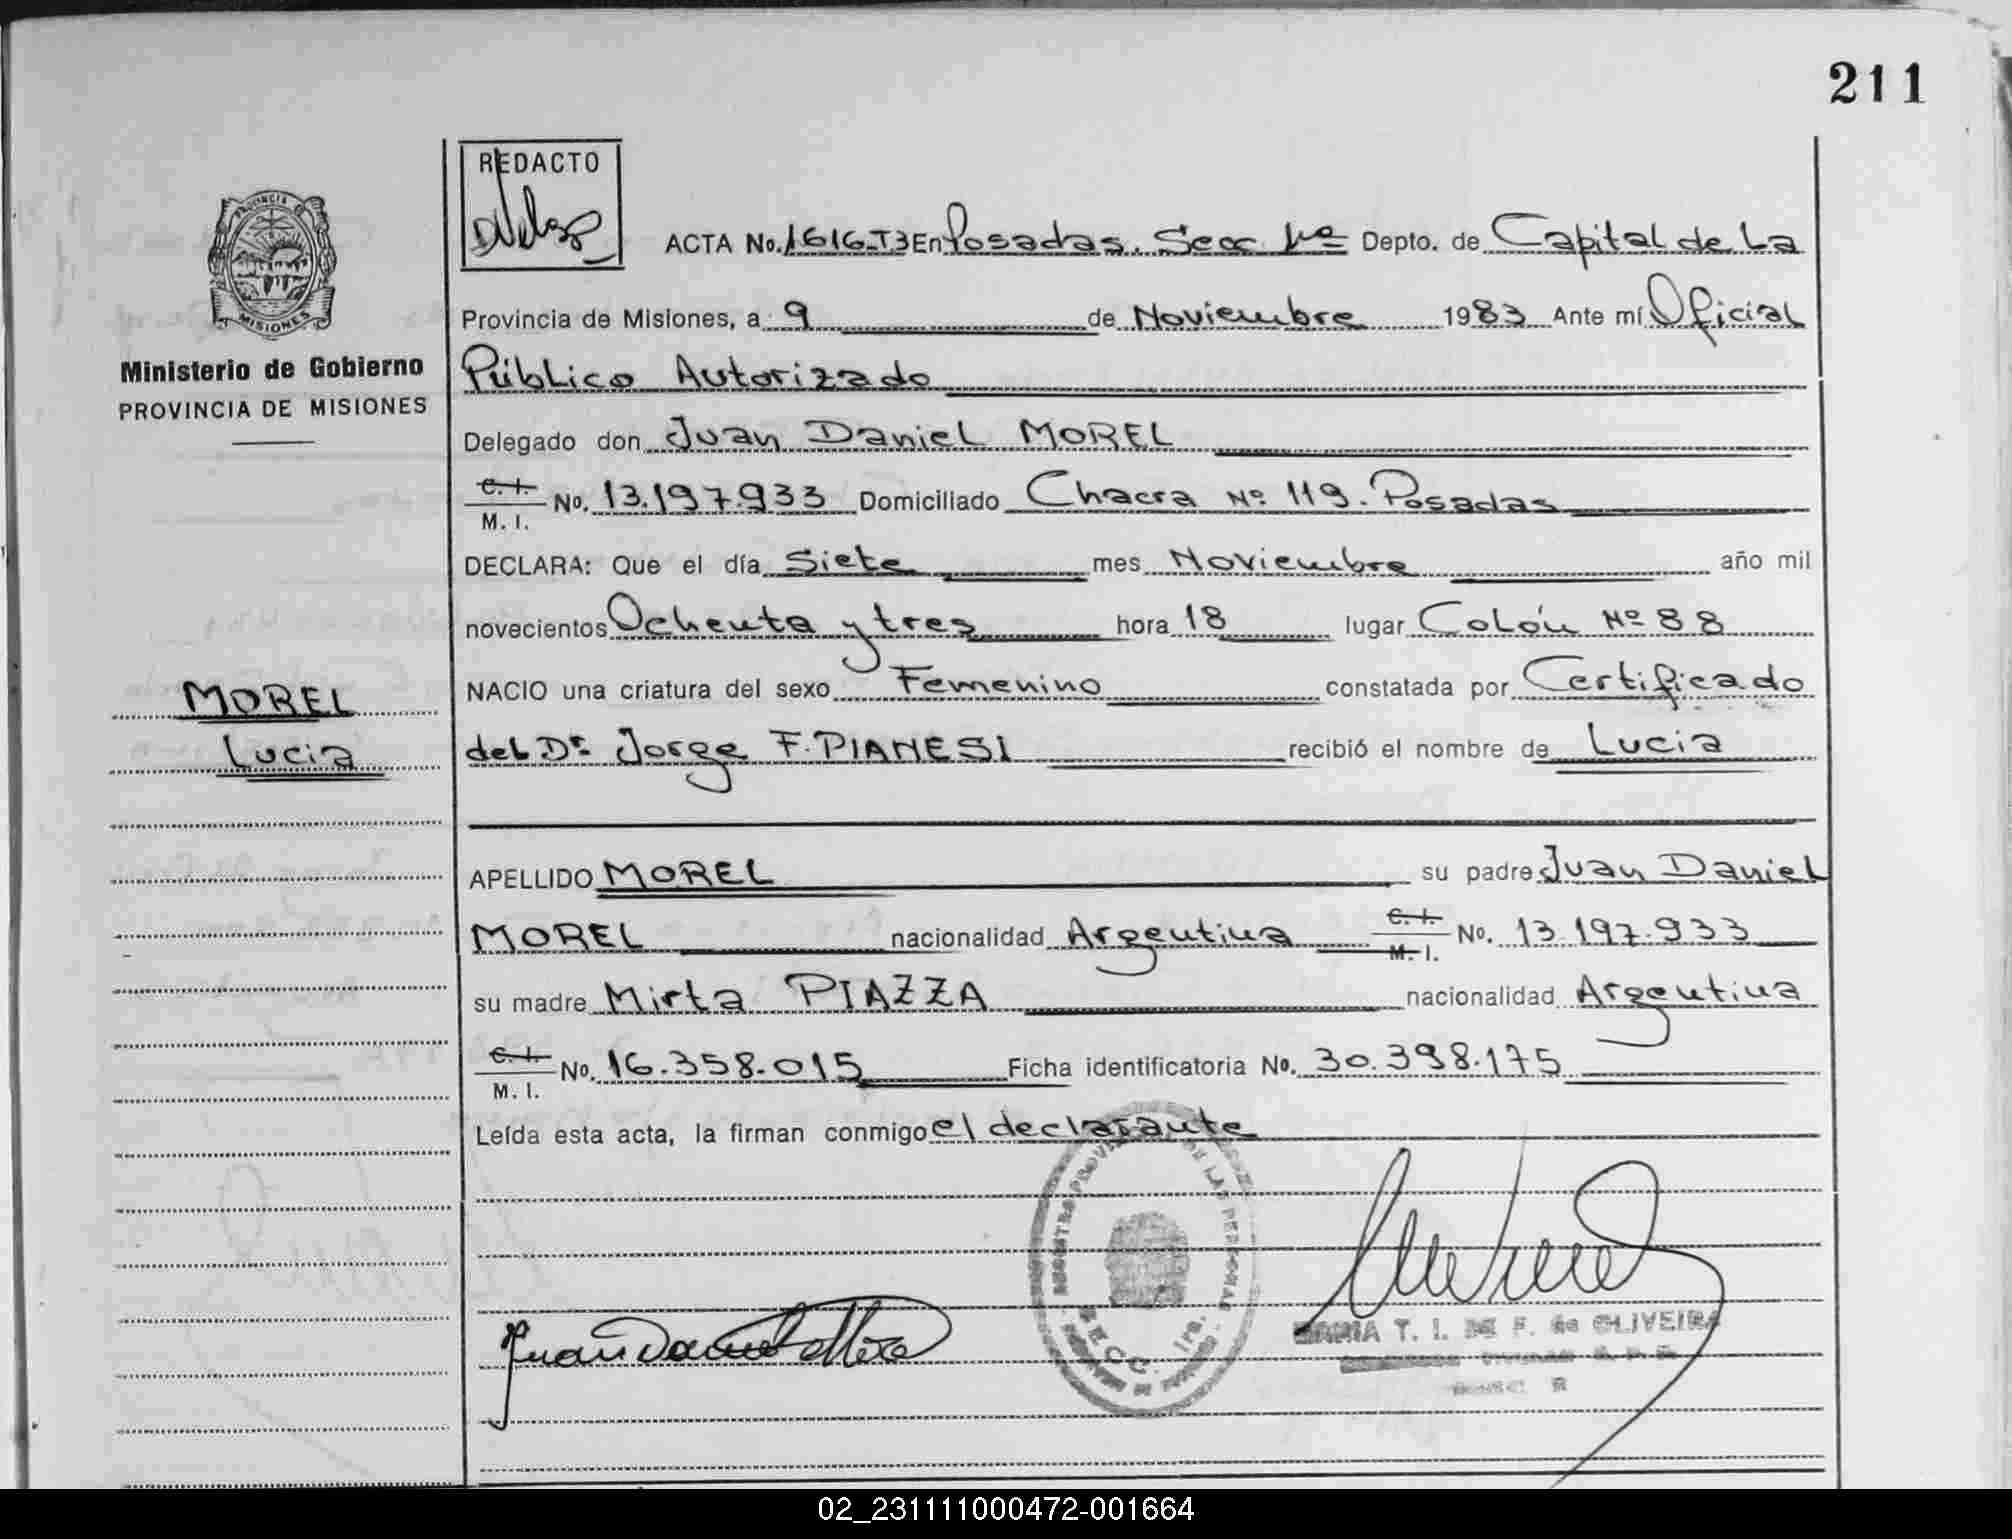 211
REDACTO
ACTA No. 1616-T3 En Posadas. Secc 1ra Depto. de Capital de La
Provincia de Misiones, a 9 de Noviembre 1983 Ante mí Oficial
Público Autorizado
Delegado don Juan Daniel MOREL
C. I.
M. I.
No. 13.197.933 Domiciliado Chacra Nº 119. Posadas
DECLARA: Que el día Siete mes Noviembre año mil
novecientos Ochenta y tres hora 18 lugar Colón Nº 88
NACIO una criatura del sexo Femenino constatada por Certificado
del Dr Jorge F. PIANESI recibió el nombre de Lucia
APELLIDO MOREL su padre Juan Daniel
MOREL nacionalidad Argentina C. I. M. I. No. 13.197.933
su madre Mirta PIAZZA nacionalidad Argentina
C. I.
M. I.
No. 16.358.015 Ficha identificatoria No. 30.398.175
Leída esta acta, la firman conmigo el declarante
PROVINCIA D
MISIONES
Ministerio de Gobierno
PROVINCIA DE MISIONES
MOREL
Lucia
REGISTRO PROVIN DE LAS PERSONAS
SECC. 1ra.
Juan Daniel More
MARIA T. I. DE F. de OLIVEIRA
02_231111000472-001664